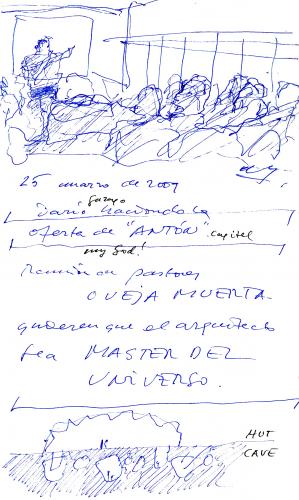 25 marzo de 2009
gazapo
Darío haciendo la
oferta de "ANTÓN" capitel
my God!
Reunión pastores
OVEJA MUERTA
quieren que el arquitecto
sea MASTER DEL
UNIVERSO.
HUT
CAVE